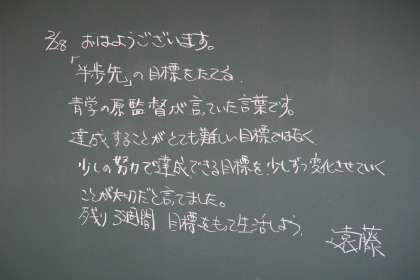 2/28 おはようございます。
「半歩先」の目標をたてる。
青学の原監督が言っていた言葉です。
達成することがとても難しい目標ではなく
少しの努力で達成できる目標を少しずつ変化させていく
ことが大切だと言ってました。
残り3週間 目標をもって生活しよう。
遠藤